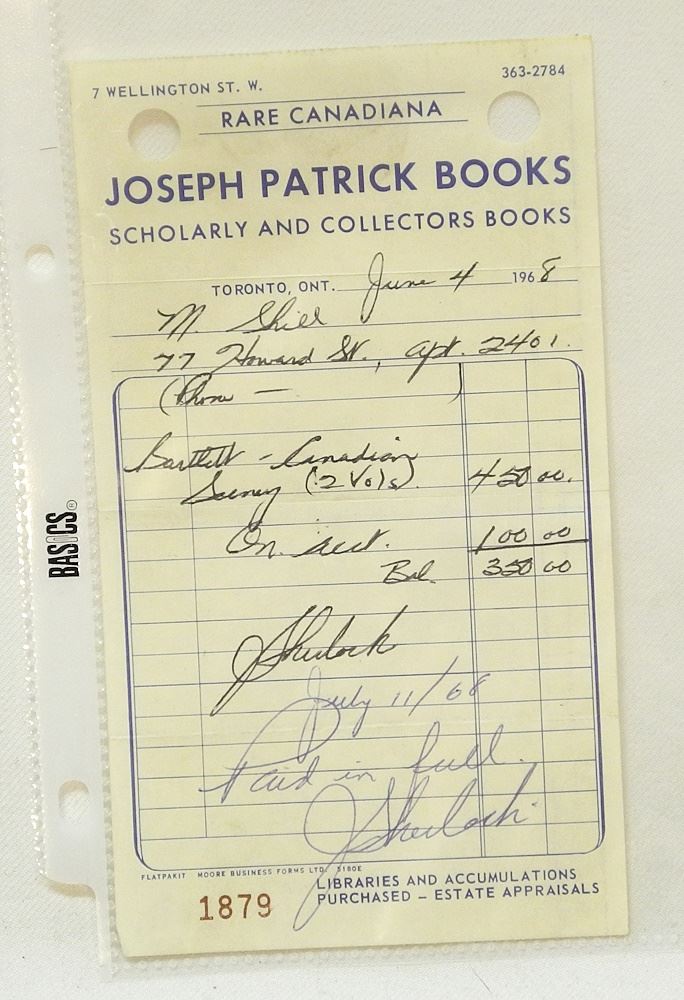 7 WELLINGTON ST. W.
363-2784
RARE CANADIANA
JOSEPH PATRICK BOOKS
SCHOLARLY AND COLLECTORS BOOKS
TORONTO, ONT. June 4 1968
M. Shill
77 Howard St., apt. 2401.
(Phone — )
Bartlett - Canadian
Scenery (2 Vols). 450 00.
On acct. 100 00
Bal. 350 00
J Sherlock
July 11/68
Paid in full.
J Sherlock.
FLATPAKIT MOORE BUSINESS FORMS LTD. 5180E
1879
LIBRARIES AND ACCUMULATIONS
PURCHASED – ESTATE APPRAISALS
BASICS®